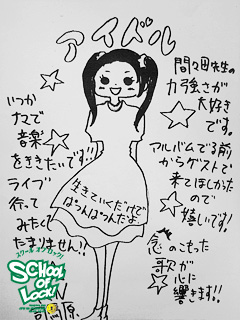 アイドル
間々田先生の
力強さが
大好き
です。
アルバムでる前
からゲストで
来てほしかった
ので
嬉しいです!
念のこもった
歌が
心に
響きます!!
いつか
ナマで
音楽
をききたいです!!
ライブ
行って
みたくて
たまりません!!
生きていくだけで
ぱつんぱつんだよ
スクール・オブ・ロック!
SCHOOL
OF
LOCK!